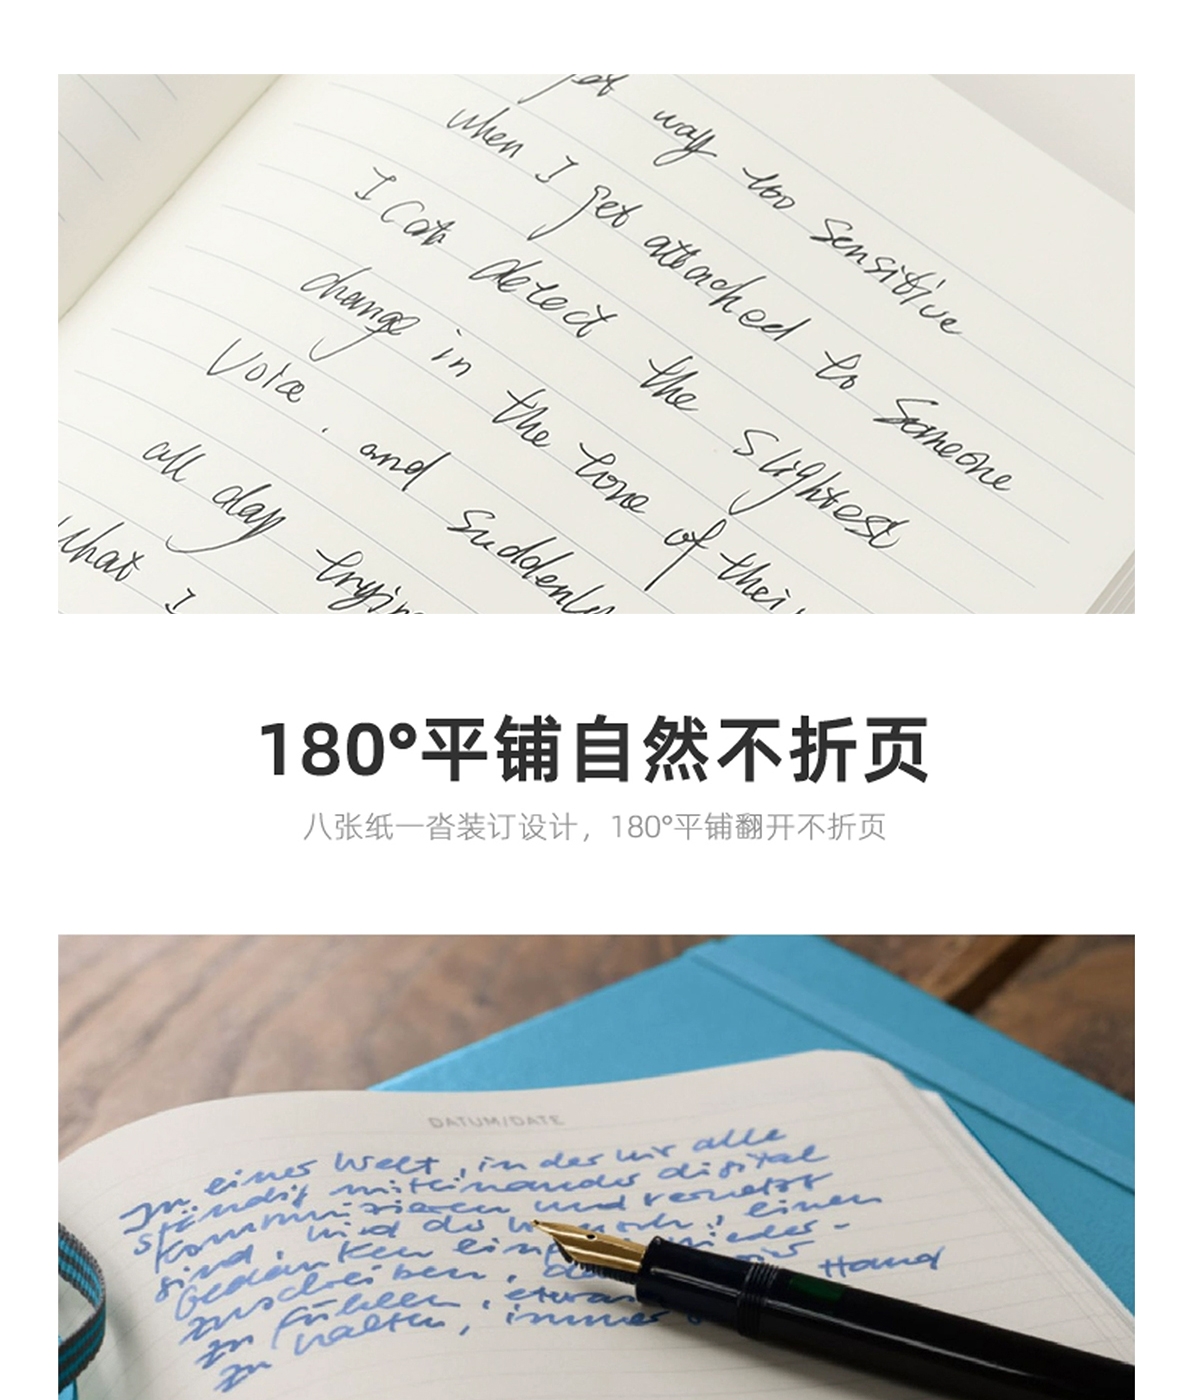 get way too sensitive
when I get attached to Someone
I Can detect the Slightest
change in the tone of their
Voice. and Suddenly
all day trying
what I
180°平铺自然不折页
八张纸一沓装订设计，180°平铺翻开不折页
DATUM/DATE
In einer Welt, in der wir alle
ständig miteinander digital
kommunizieren und vernetzt
sind, wird der Wunsch, einen
Gedanken einfach wieder-
zuschreiben, Hand
zu fühlen, etwas
zu halten, immer